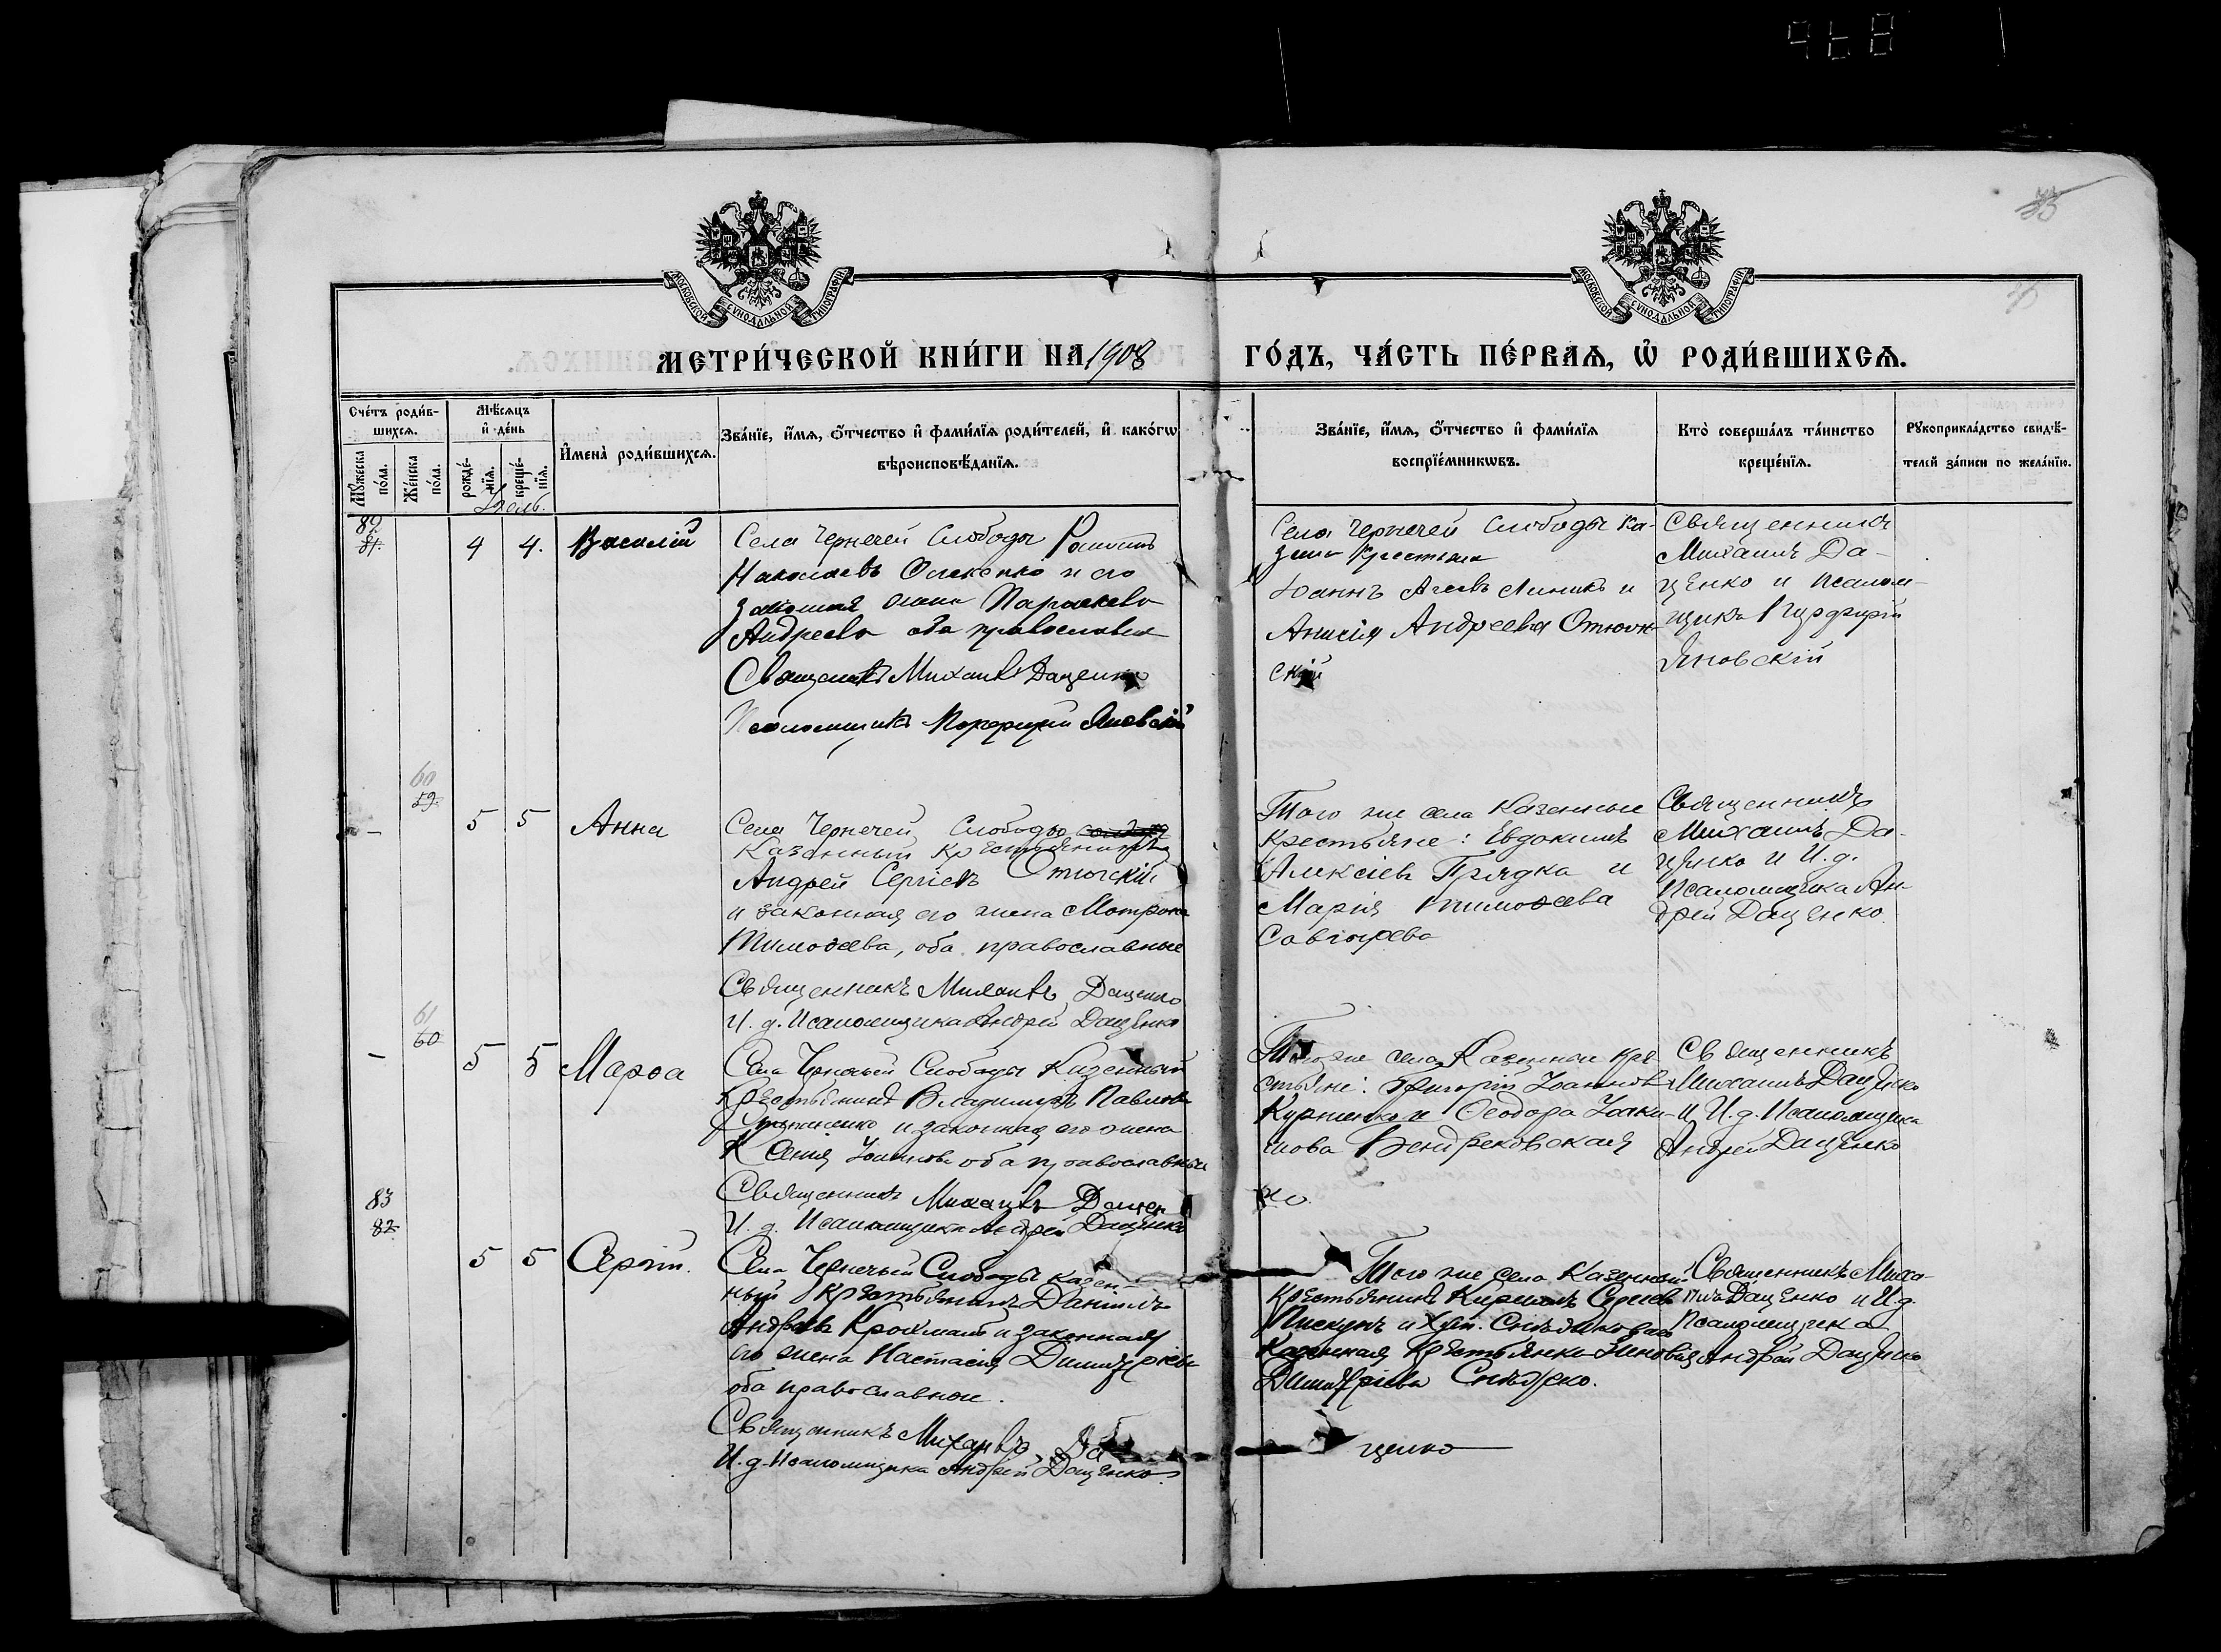 968
35
МОСКОВСКОЙ СѴНОДАЛЬНОЙ ТИПОГРАФІИ
МОСКОВСКОЙ СѴНОДАЛЬНОЙ ТИПОГРАФІИ
МЕТРИ́ЧЕСКОЙ КНИ́ГИ НА 1908 ГО́ДЪ, ЧА́СТЬ ПЕ́РВАѦ, Ѡ҆ РОДИ́ВШИХСѦ.
Сче́тъ роди́в-
шихсѧ.
Мꙋ́жеска
по́ла.
Же́нска
по́ла.
Мѣ́сѧцъ
и҆ де́нь
рожде́-
нїѧ.
креще́-
нїѧ.
И҆мена̀ роди́вшихсѧ.
Зва́нїе, и҆́мѧ, ѻ҆́тчество и҆ фами́лїѧ роди́телей, и҆ како́гѡ
вѣроисповѣ́данїѧ.
Зва́нїе, и҆́мѧ, ѻ҆́тчество и҆ фами́лїѧ
воспрїе́мникѡвъ.
Кто̀ соверша́лъ та́инство
креще́нїѧ.
Рꙋкоприкла́дство свидѣ́-
телей за́писи по жела́нїю.
82
81.
4 4. Василій
Села Чернечей Слободы
Николаевъ и его
законная жена Параскева
Андреева оба православн
Священникъ Михаилъ Даценко
Псаломщикъ Порфирій Яновскій
Села Чернечей Слободы Ка-
зен Крестьяне
Іоаннъ и
Анисія Андреева
скій
Священникъ
Михаилъ Да-
ценко и псалом-
щикъ Порфирій
Яновскій
60
59.
– 5 5 Анна
Села Чернечей Слободы
Казенный крестьянинъ
Андрей Сергіевъ
и законная его жена Мотрона
Тимоѳеева, оба православные
Священникъ Михаилъ Даценко
И. д. Псаломщика Андрей Даценко
Того же села Казенные
крестьяне: Евдокимъ
Алексіевъ Прядка и
Марія Тимоѳеева
Священникъ
Михаилъ Да-
ценко и И. д.
Псаломщика Ан-
дрей Даценко.
61
60
– 5 5 Марѳа
Села Чернечей Слободы Казенный
Крестьянинъ Владимиръ Павловъ
и законная его жена
Ксенія Іоаннова оба православные
Священникъ Михаилъ Дацен
И. д. Псаломщика Андрей Даценко
Того же села Казенные кре-
стьяне: Григорій Іоанновъ
и Ѳеодора Іоаки-
мова
ко.
Священникъ
Михаилъ Даценко
и И. д. Псаломщика
Андрей Даценко
83
82
5 5 Сергій.
Села Чернечей Слободы казен-
ный крестьянинъ Даніилъ
Андреевъ Крохмаль и законная
его жена Настасія Димитріева
оба православные.
Священникъ Михаилъ Да
И. д. Псаломщика Андрей Даценко
Того же села Казенный
крестьянинъ Кириллъ
Пискунъ и Хут.
Казенная крестьянка Зиновія
Димитріева
ценко
Священникъ Миха-
илъ Даценко и И. д.
Псаломщика
Андрей Даценко